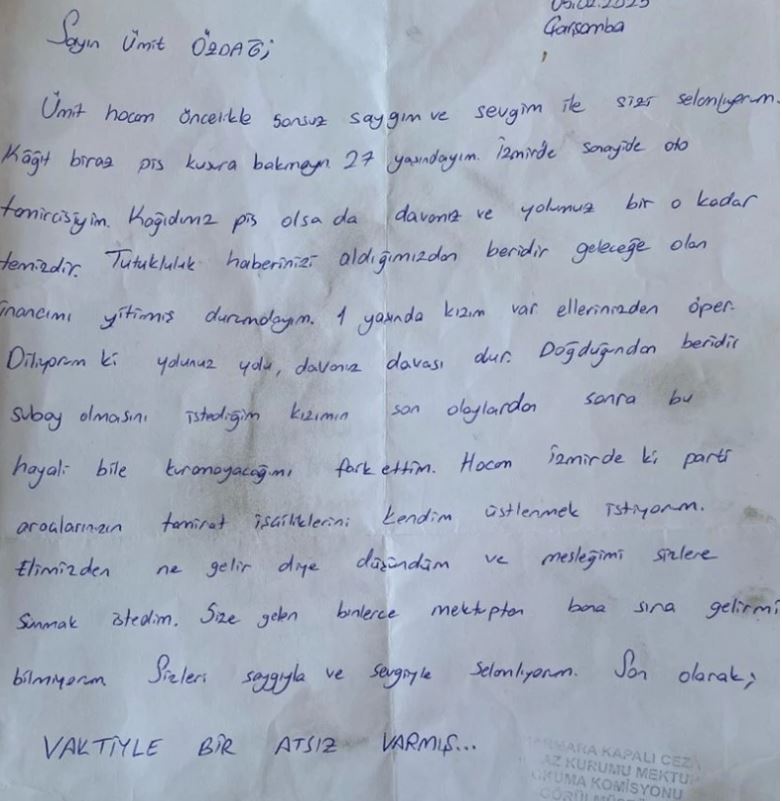 05.02.2025
Çarşamba
Sayın Ümit ÖZDAĞ;
Ümit hocam öncelikle sonsuz saygım ve sevgim ile sizi selamlıyorum.
Kâğıt biraz pis kusura bakmayın 27 yaşındayım. İzmirde sanayide oto
tamircisiyim. Kağıdımız pis olsa da davanız ve yolunuz bir o kadar
temizdir. Tutukluluk haberinizi aldığımızdan beridir geleceğe olan
inancımı yitirmiş durumdayım. 1 yaşında kızım var ellerinizden öper.
Diliyorum ki yolunuz yolu, davanız davası dur. Doğduğundan beridir
subay olmasını istediğim kızımın son olaylardan sonra bu
hayali bile kuramayacağımı fark ettim. Hocam İzmirde ki parti
araçlarınızın tamirat işçiliklerini kendim üstlenmek istiyorum.
Elimizden ne gelir diye düşündüm ve mesleğimi sizlere
sunmak istedim. Size gelen binlerce mektuptan bana sıra gelirmi
bilmiyorum Sizleri saygıyla ve sevgiyle selamlıyorum. Son olarak;
VAKTİYLE BİR ATSIZ VARMIŞ...
MARMARA KAPALI CEZA
AZ KURUMU MEKTUP
OKUMA KOMİSYONU
GÖRÜLMÜŞTÜR